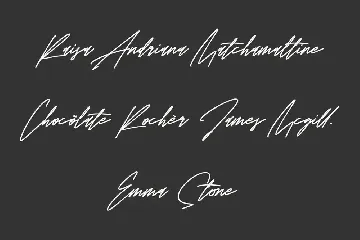 Raisa Andriana Matchamattine
Chocolaté Rochèr James Mcgill.
Emma Stone